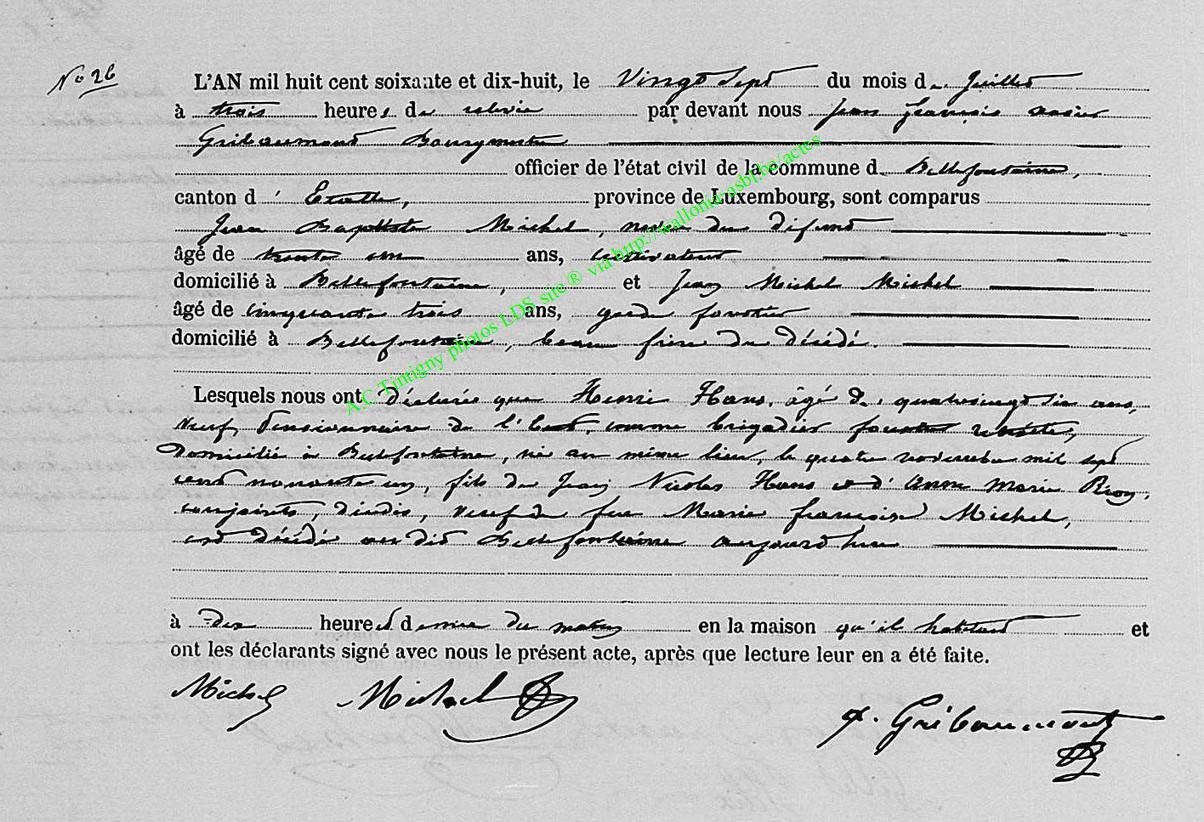 No 26
L'AN mil huit cent soixante et dix-huit, le Vingt Sept du mois de Juillet
à trois heures de relevée par devant nous Jean François
Gribaumont Bourgmestre
officier de l'état civil de la commune de Bellefontaine,
canton d'Etalle, province de Luxembourg, sont comparus
Jean Baptiste Michel, neveu du défunt
âgé de trente un ans, cultivateur
domicilié à Bellefontaine, et Jean Michel Michel
âgé de cinquante trois ans, garde forestier
domicilié à Bellefontaine, beau frère du décédé.
Lesquels nous ont déclaré que Henri Hans, âgé de quatrevingt six ans,
veuf, Pensionnaire de l'Etat, comme brigadier forestier retraité,
domicilié à Bellefontaine, né au même lieu, le quatre novembre mil sept
cent nonante un, fils de Jean Nicolas Hans et d'Anne Marie
conjoints, décédés, veuf de feue Marie françoise Michel,
est décédé au dit Bellefontaine aujourd'hui
à dix heures demie du matin en la maison qu'il habitait et
ont les déclarants signé avec nous le présent acte, après que lecture leur en a été faite.
Michel Michel
Gribaumont
A.C Tintigny photos LDS site ® via http://wallonica.asbl.be/actes